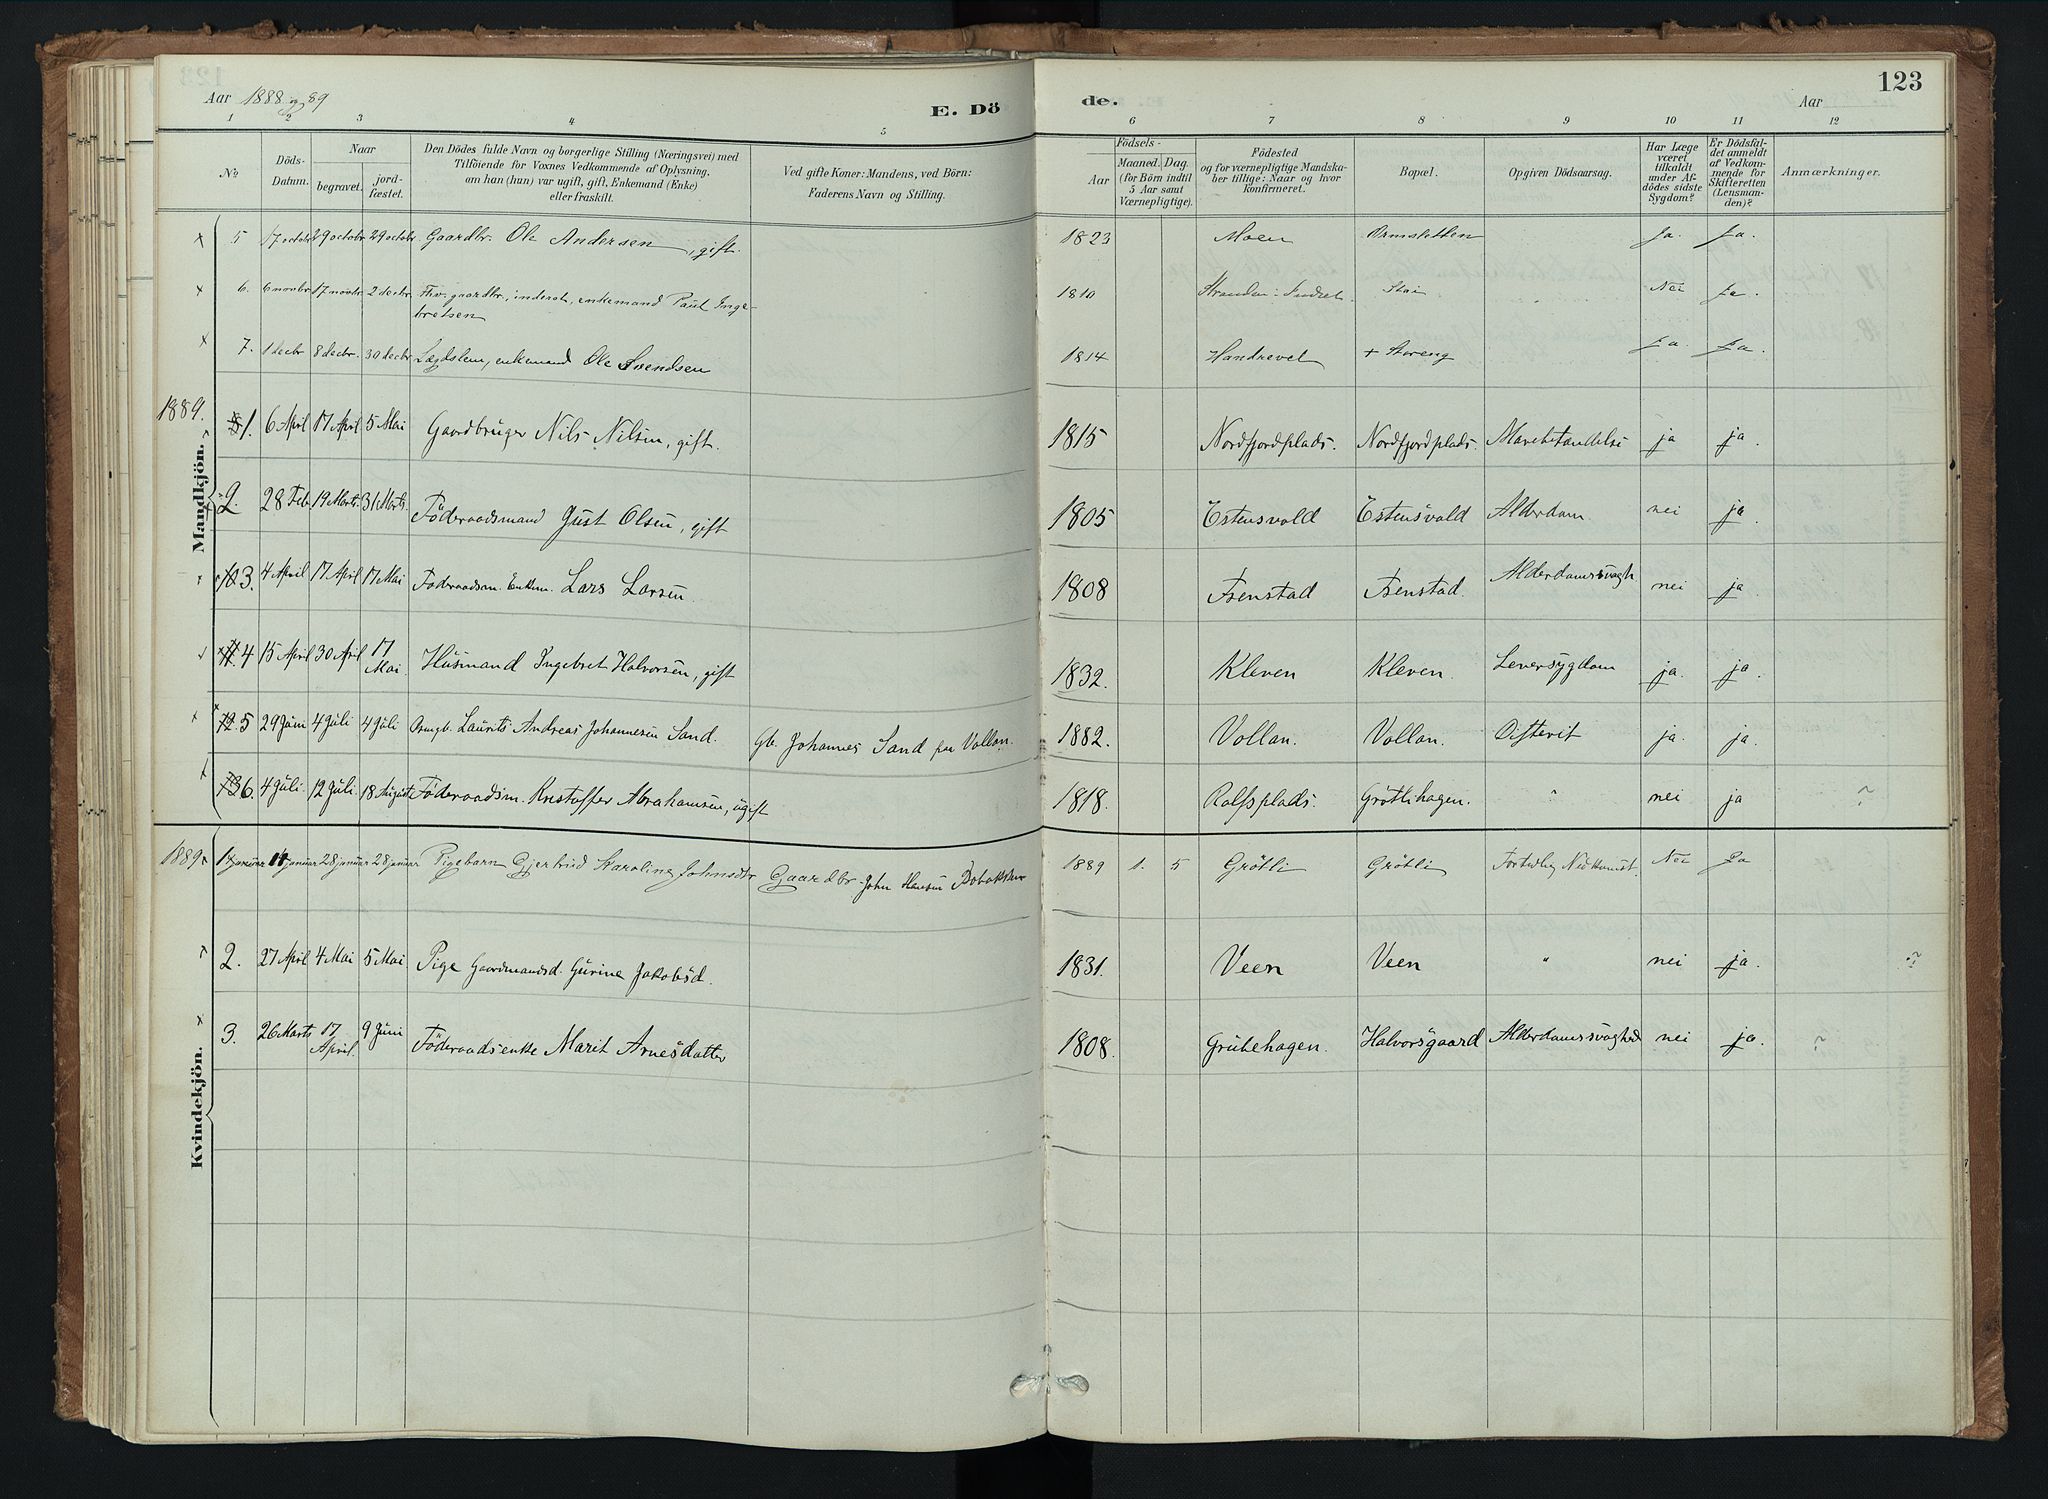 Aar 1888 og 89
E. Dö
de.
Aar
123
1 2 3 4 5 6 7 8 9 10 11 12
No
Döds-Datum.
Naar
begravet.
jord-fæstet.
Den Dödes fulde Navn og borgerlige Stilling (Næringsvei) med
Tilföiende for Voxnes Vedkommende af Oplysning,
om han (hun) var ugift, gift, Enkemand (Enke)
eller fraskilt.
Ved gifte Koner: Mandens, ved Börn:
Faderens Navn og Stilling.
Födsels-
Aar
Maaned. Dag.
(for Börn indtil
5 Aar samt
Værnepligtige).
Födested
og for værnepligtige Mandska-
ber tillige: Naar og hvor
konfirmeret.
Bopæl.
Opgiven Dödsaarsag.
Har Læge
været
tilkaldt
under Af-
dödes sidste
Sygdom?
Er Dödsfal-
det anmeldt
af Vedkom-
mende for
Skifteretten
(Lensman-
den)?
Anmærkninger.
5 17 octobr 29 octobr 29 octobr Gaardbr. Ole Andersen, gift. 1823 Moen Ja. Ja.
6. 6 novbr 17 novbr 2 decbr Fhv. gaardbr., inderst, enkemand Paul Inge-
bretsen 1810 Nei Ja.
7. 1 decbr 8 decbr. 30 decbr Lægdslem, enkemand Ole Svendsen 1814 + Storeng Ja. Ja.
1889.
Mandkjön.
1. 6 April 17 April 5 Mai Gaardbruger Nils Nilsen, gift. 1815 Nordfjordplads. Nordfjordplads. ja ja.
2. 28 Feb 19 Marts. 31 Marts. Föderaadsmand Just Olsen, gift 1805 Estensvold Estensvold Alderdom nei ja
3. 4 April 17 April 17 Mai Föderaadsm. Enkem. Lars Larsen 1808 Tsenstad Tsenstad. Alderdomssvagh. nei ja
4 15 April 30 April 17
Mai Husmand Ingebret Halvorsen, gift 1832. Kleven Kleven. Leversygdom ja. ja.
5 29 Juni 4 Juli 4 Juli Laurits Andreas Johannesen Sand. Gb. Johannes Sand paa Vollan. 1882. Vollan. Vollan. Difterit ja. ja.
6. 4 Juli. 12 Juli. 18 August Föderaadsm. Kristoffer Abrahamsen, ugift 1818. Rolfsplads. Grötlihagen. " nei ja
1889
Kvindekjön.
1 januar 14 januar 28 januar 28 januar Pigebarn Gjertrud Karoline Johnsdtr Gaardbr. John Hansen 1889 1. 5 Grötli Grötli Nei Ja
2. 27 April 4 Mai 5 Mai Pige Gaardmandsd. Gurine Jakobsd. 1831. Veen Veen " nei ja.
3. 26 Marts 17
April. 9 Juni Föderaadsenke Marit Arnesdatter 1808. Grubehagen. Halvorsgaard Alderdomssvaghed nei ja.